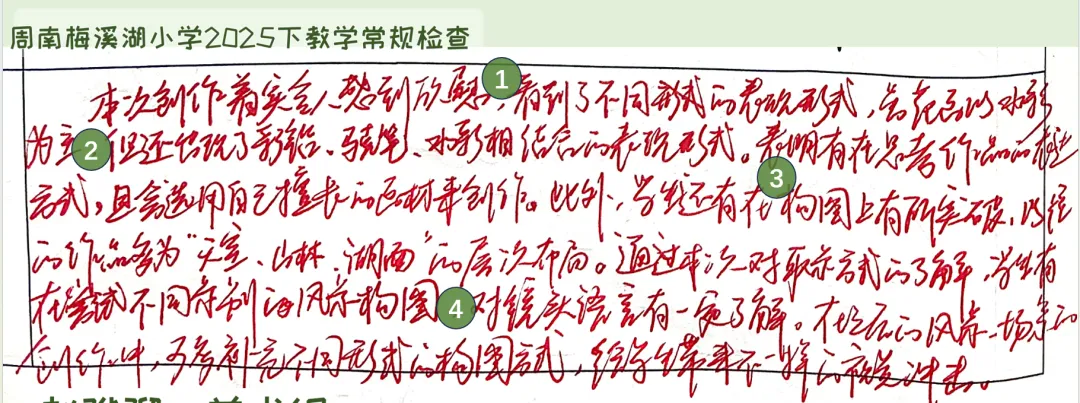 周南梅溪湖小学2025下教学常规检查
本次创作着实令人感到欣慰，看到了不同形式的表现形式，尝试以水彩
为主 但还出现了彩铅、马克笔、水彩相结合的表现形式。表明有在思考作品的
方式，且会选用自己擅长的画材来创作。此外，学生还有在构图上有所突破，以往
的作品多为“天空、山林、湖面”的层次布局。通过本次对取景方式的了解，学生有
在尝试不同景别的风景构图 对镜头语言有一定了解。在之后的风景场景的
创作中，可多补充不同形式的构图方式，给学生带来不一样的视觉冲击。
1
2
3
4